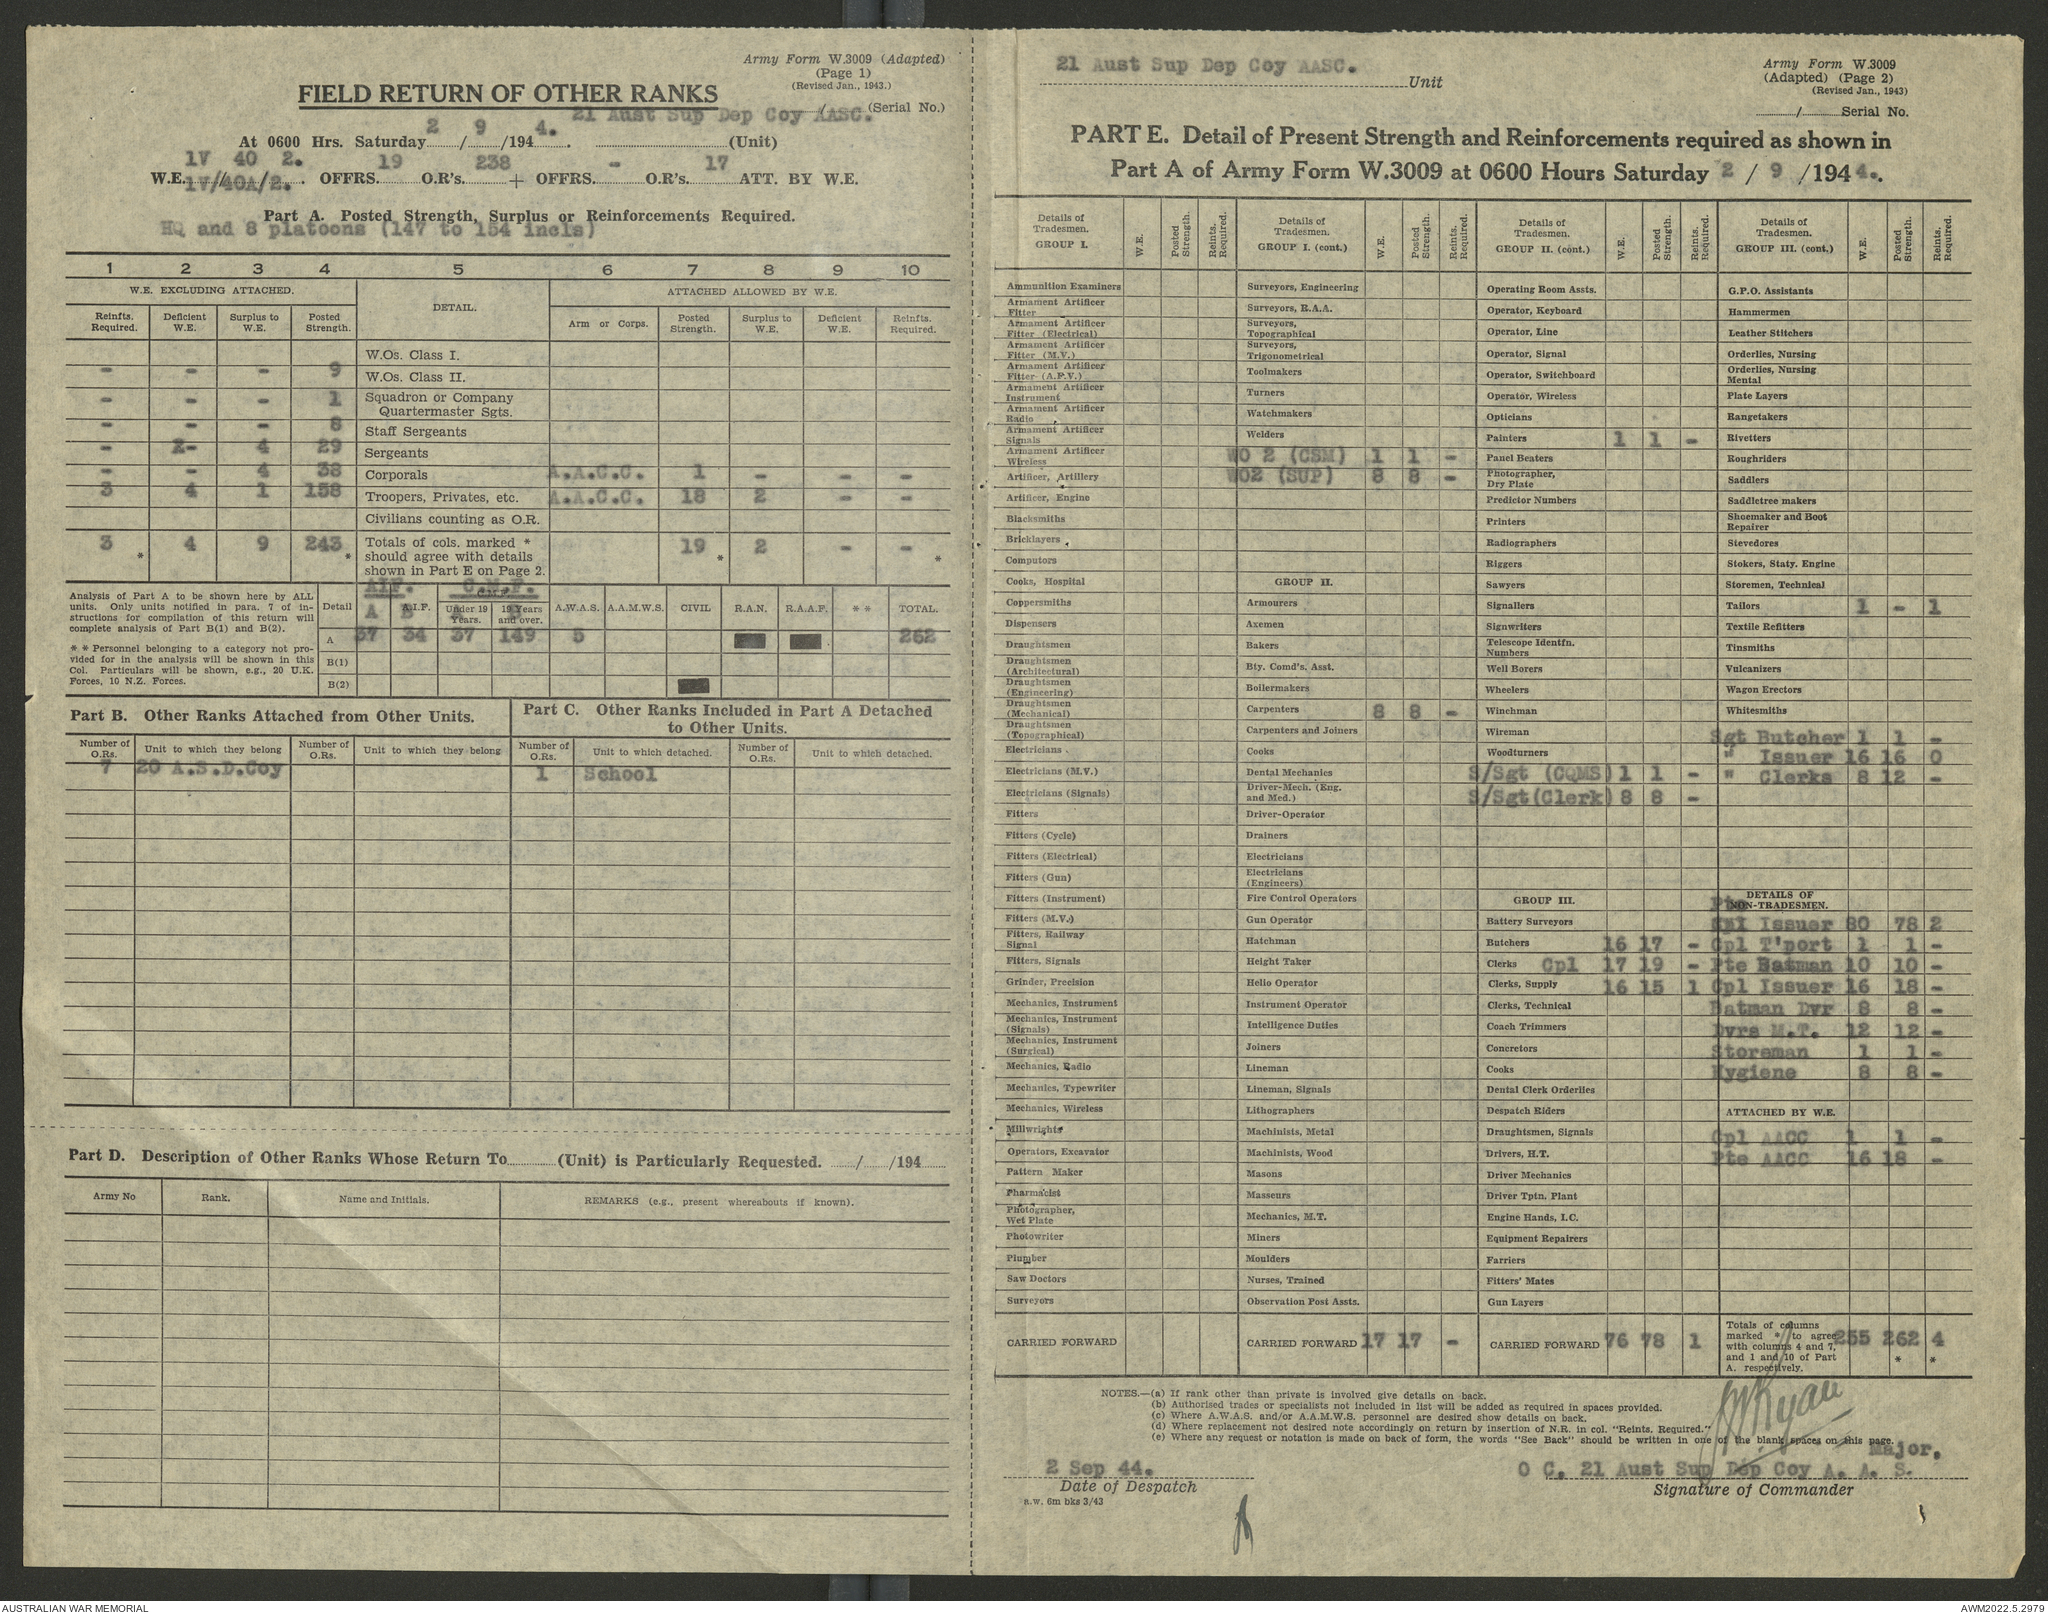 Army Form W.3009 (Adapted)
(Page 1)
(Revised Jan., 1943.)
FIELD RETURN OF OTHER RANKS
/ (Serial No.)
21 Aust Sup Dep Coy AASC.
At 0600 Hrs. Saturday 2 / 9 /194 4. (Unit)
1V 40 2.
W.E. 1V/40A/2. OFFRS. 19 O.R's. 238 + OFFRS. - O.R's. 17 ATT. BY W.E.
Part A. Posted Strength, Surplus or Reinforcements Required.
HQ and 8 platoons (147 to 154 incls)
1 2 3 4 5 6 7 8 9 10
W.E. EXCLUDING ATTACHED. DETAIL. ATTACHED ALLOWED BY W.E.
Reinfts. Required. Deficient W.E. Surplus to W.E. Posted Strength. Arm or Corps. Posted Strength. Surplus to W.E. Deficient W.E. Reinfts. Required.
W.Os. Class I.
- - - 9 W.Os. Class II.
- - - 1 Squadron or Company Quartermaster Sgts.
- - - 8 Staff Sergeants
- - 4 29 Sergeants
- - 4 38 Corporals A.A.C.C. 1 - - -
3 4 1 158 Troopers, Privates, etc. A.A.C.C. 18 2 - -
Civilians counting as O.R.
3 * 4 9 243 * Totals of cols. marked * should agree with details shown in Part E on Page 2. 19 * 2 - - *
Analysis of Part A to be shown here by ALL units. Only units notified in para. 7 of instructions for compilation of this return will complete analysis of Part B(1) and B(2).
* * Personnel belonging to a category not provided for in the analysis will be shown in this Col. Particulars will be shown, e.g., 20 U.K. Forces, 10 N.Z. Forces.
AIF. C.M.F.
Detail A B A.I.F. C.M.F. Under 19 Years. 19 Years and over. A.W.A.S. A.A.M.W.S. CIVIL R.A.N. R.A.A.F. * * TOTAL.
A 37 34 37 149 5 262
B(1)
B(2)
Part B. Other Ranks Attached from Other Units.
Part C. Other Ranks Included in Part A Detached to Other Units.
Number of O.Rs. Unit to which they belong Number of O.Rs. Unit to which they belong Number of O.Rs. Unit to which detached. Number of O.Rs. Unit to which detached.
7 20 A.S.D.Coy 1 School
Part D. Description of Other Ranks Whose Return To (Unit) is Particularly Requested. / /194
Army No Rank. Name and Initials. REMARKS (e.g., present whereabouts if known).
21 Aust Sup Dep Coy AASC. Unit
Army Form W.3009
(Adapted) (Page 2)
(Revised Jan., 1943)
/ Serial No.
PART E. Detail of Present Strength and Reinforcements required as shown in
Part A of Army Form W.3009 at 0600 Hours Saturday 2 / 9 /194 4.
Details of Tradesmen. GROUP I. W.E. Posted Strength. Reints. Required.
Ammunition Examiners
Armament Artificer Fitter
Armament Artificer Fitter (Electrical)
Armament Artificer Fitter (M.V.)
Armament Artificer Fitter (A.F.V.)
Armament Artificer Instrument
Armament Artificer Radio
Armament Artificer Signals
Armament Artificer Wireless
Artificer, Artillery
Artificer, Engine
Blacksmiths
Bricklayers
Computors
Cooks, Hospital
Coppersmiths
Dispensers
Draughtsmen
Draughtsmen (Architectural)
Draughtsmen (Engineering)
Draughtsmen (Mechanical)
Draughtsmen (Topographical)
Electricians
Electricians (M.V.)
Electricians (Signals)
Fitters
Fitters (Cycle)
Fitters (Electrical)
Fitters (Gun)
Fitters (Instrument)
Fitters (M.V.)
Fitters, Railway Signal
Fitters, Signals
Grinder, Precision
Mechanics, Instrument
Mechanics, Instrument (Signals)
Mechanics, Instrument (Surgical)
Mechanics, Radio
Mechanics, Typewriter
Mechanics, Wireless
Millwrights
Operators, Excavator
Pattern Maker
Pharmacist
Photographer, Wet Plate
Photowriter
Plumber
Saw Doctors
Surveyors
CARRIED FORWARD
Details of Tradesmen. GROUP I. (cont.) W.E. Posted Strength. Reints. Required.
Surveyors, Engineering
Surveyors, R.A.A.
Surveyors, Topographical
Surveyors, Trigonometrical
Toolmakers
Turners
Watchmakers
Welders
WO 2 (CSM) 1 1 -
WO2 (SUP) 8 8 -
GROUP II.
Armourers
Axemen
Bakers
Bty. Comd's. Asst.
Boilermakers
Carpenters 8 8 -
Carpenters and Joiners
Cooks
Dental Mechanics
Driver-Mech. (Eng. and Med.)
Driver-Operator
Drainers
Electricians
Electricians (Engineers)
Fire Control Operators
Gun Operator
Hatchman
Height Taker
Helio Operator
Instrument Operator
Intelligence Duties
Joiners
Lineman
Lineman, Signals
Lithographers
Machinists, Metal
Machinists, Wood
Masons
Masseurs
Mechanics, M.T.
Miners
Moulders
Nurses, Trained
Observation Post Assts.
CARRIED FORWARD 17 17 -
Details of Tradesmen. GROUP II. (cont.) W.E. Posted Strength. Reints. Required.
Operating Room Assts.
Operator, Keyboard
Operator, Line
Operator, Signal
Operator, Switchboard
Operator, Wireless
Opticians
Painters 1 1 -
Panel Beaters
Photographer, Dry Plate
Predictor Numbers
Printers
Radiographers
Riggers
Sawyers
Signallers
Signwriters
Telescope Identfn. Numbers
Well Borers
Wheelers
Winchman
Wireman
Woodturners
S/Sgt (CQMS) 1 1 -
S/Sgt(Clerk) 8 8 -
GROUP III.
Battery Surveyors
Butchers 16 17 -
Clerks Cpl 17 19 -
Clerks, Supply 16 15 1
Clerks, Technical
Coach Trimmers
Concretors
Cooks
Dental Clerk Orderlies
Despatch Riders
Draughtsmen, Signals
Drivers, H.T.
Driver Mechanics
Driver Tptn. Plant
Engine Hands, I.C.
Equipment Repairers
Farriers
Fitters' Mates
Gun Layers
CARRIED FORWARD 76 78 1
Details of Tradesmen. GROUP III. (cont.) W.E. Posted Strength. Reints. Required.
G.P.O. Assistants
Hammermen
Leather Stitchers
Orderlies, Nursing
Orderlies, Nursing Mental
Plate Layers
Rangetakers
Rivetters
Roughriders
Saddlers
Saddletree makers
Shoemaker and Boot Repairer
Stevedores
Stokers, Staty. Engine
Storemen, Technical
Tailors 1 - 1
Textile Refitters
Tinsmiths
Vulcanizers
Wagon Erectors
Whitesmiths
Sgt Butcher 1 1 -
" Issuer 16 16 0
" Clerks 8 12 -
DETAILS OF NON-TRADESMEN.
Pte Issuer 80 78 2
Cpl T'port 1 1 -
Pte Batman 10 10 -
Cpl Issuer 16 18 -
Batman Dvr 8 8 -
Dvrs M.T. 12 12 -
Storeman 1 1 -
Hygiene 8 8 -
ATTACHED BY W.E.
Cpl AACC 1 1 -
Pte AACC 16 18 -
Totals of columns marked * to agree with columns 4 and 7, and 1 and 10 of Part A. respectively. 255 262 * 4 *
NOTES.—(a) If rank other than private is involved give details on back.
(b) Authorised trades or specialists not included in list will be added as required in spaces provided.
(c) Where A.W.A.S. and/or A.A.M.W.S. personnel are desired show details on back.
(d) Where replacement not desired note accordingly on return by insertion of N.R. in col. "Reints. Required."
(e) Where any request or notation is made on back of form, the words "See Back" should be written in one of the blank spaces on this page.
Ryan
Major,
2 Sep 44. O C. 21 Aust Sup Dep Coy A. A. S.
Date of Despatch Signature of Commander
a.w. 6m bks 3/43
AUSTRALIAN WAR MEMORIAL
AWM2022.5.2979